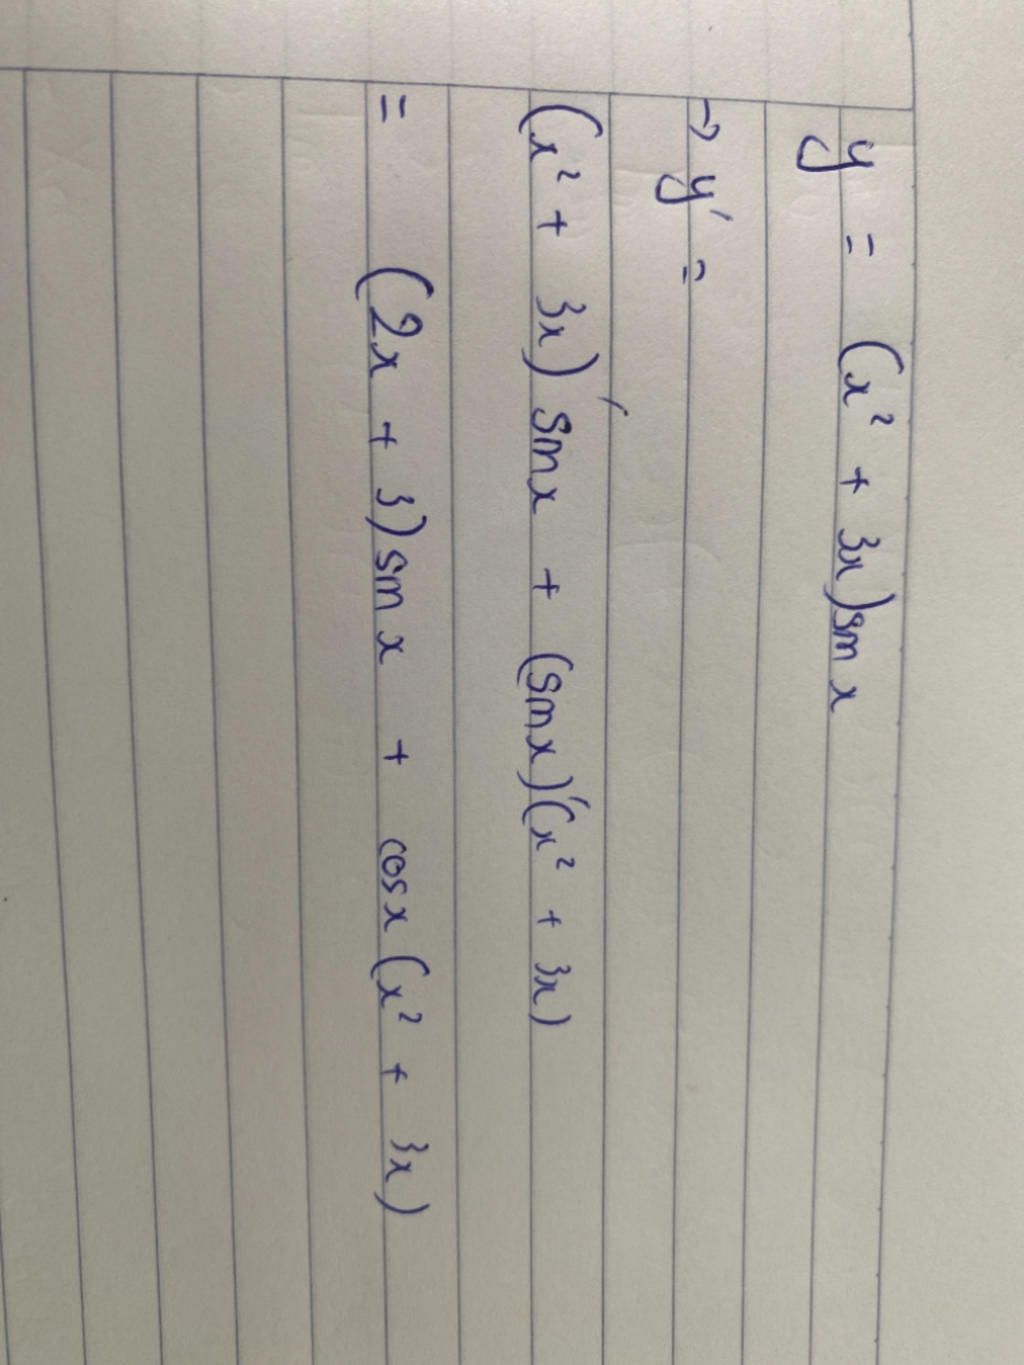 y = (x² + 3x)sin x
→ y' =
(x² + 3x)' sin x + (sin x)'(x² + 3x)
= (2x + 3)sin x + cos x (x² + 3x)